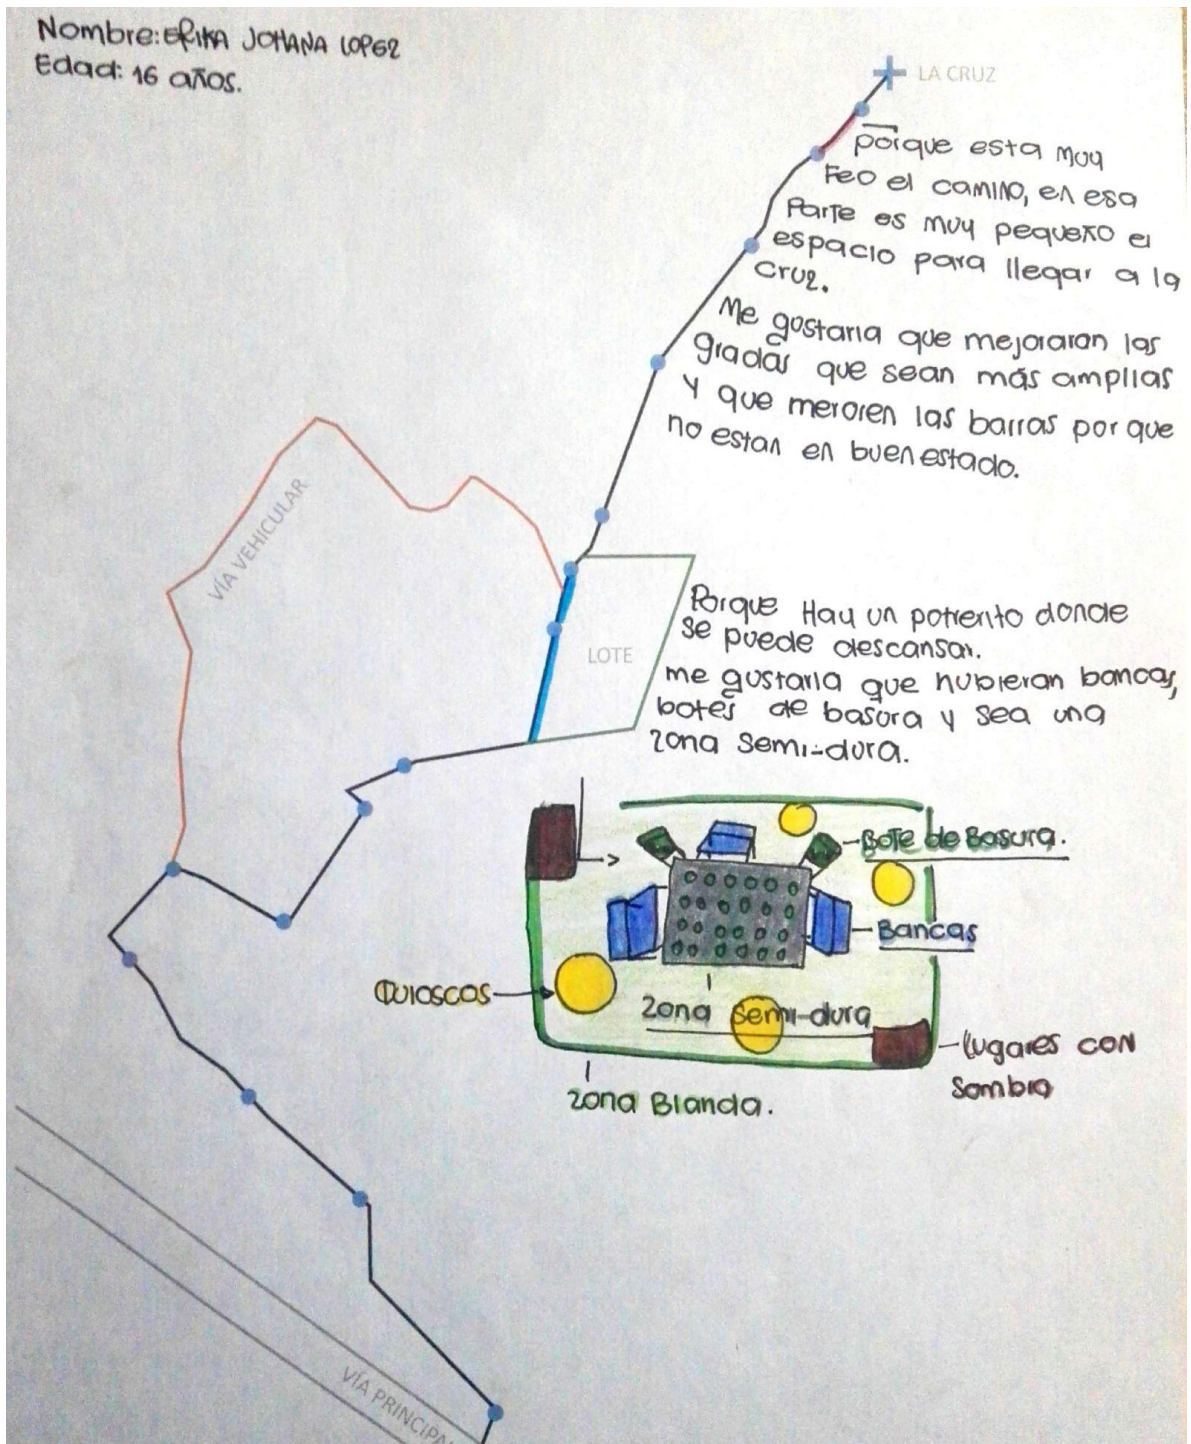 Nombre: ERIKA JOHANA LOPEZ
Edad: 16 años.
LA CRUZ
porque esta muy
Feo el camino, en esa
Parte es muy pequeño el
espacio para llegar a la
cruz.
Me gustaria que mejoraran las
gradas que sean más amplias
Y que merojen las barras por que
no estan en buen estado.
VÍA VEHICULAR
LOTE
Porque Hay un potrerito donde
se puede descansar.
me gustaria que hubieran bancas,
botes de basura y sea una
zona semi-dura.
Bote de Basura.
Bancas
Quioscos
Zona semi-dura
Lugares con
Sombra
Zona Blanda.
VÍA PRINCIPAL